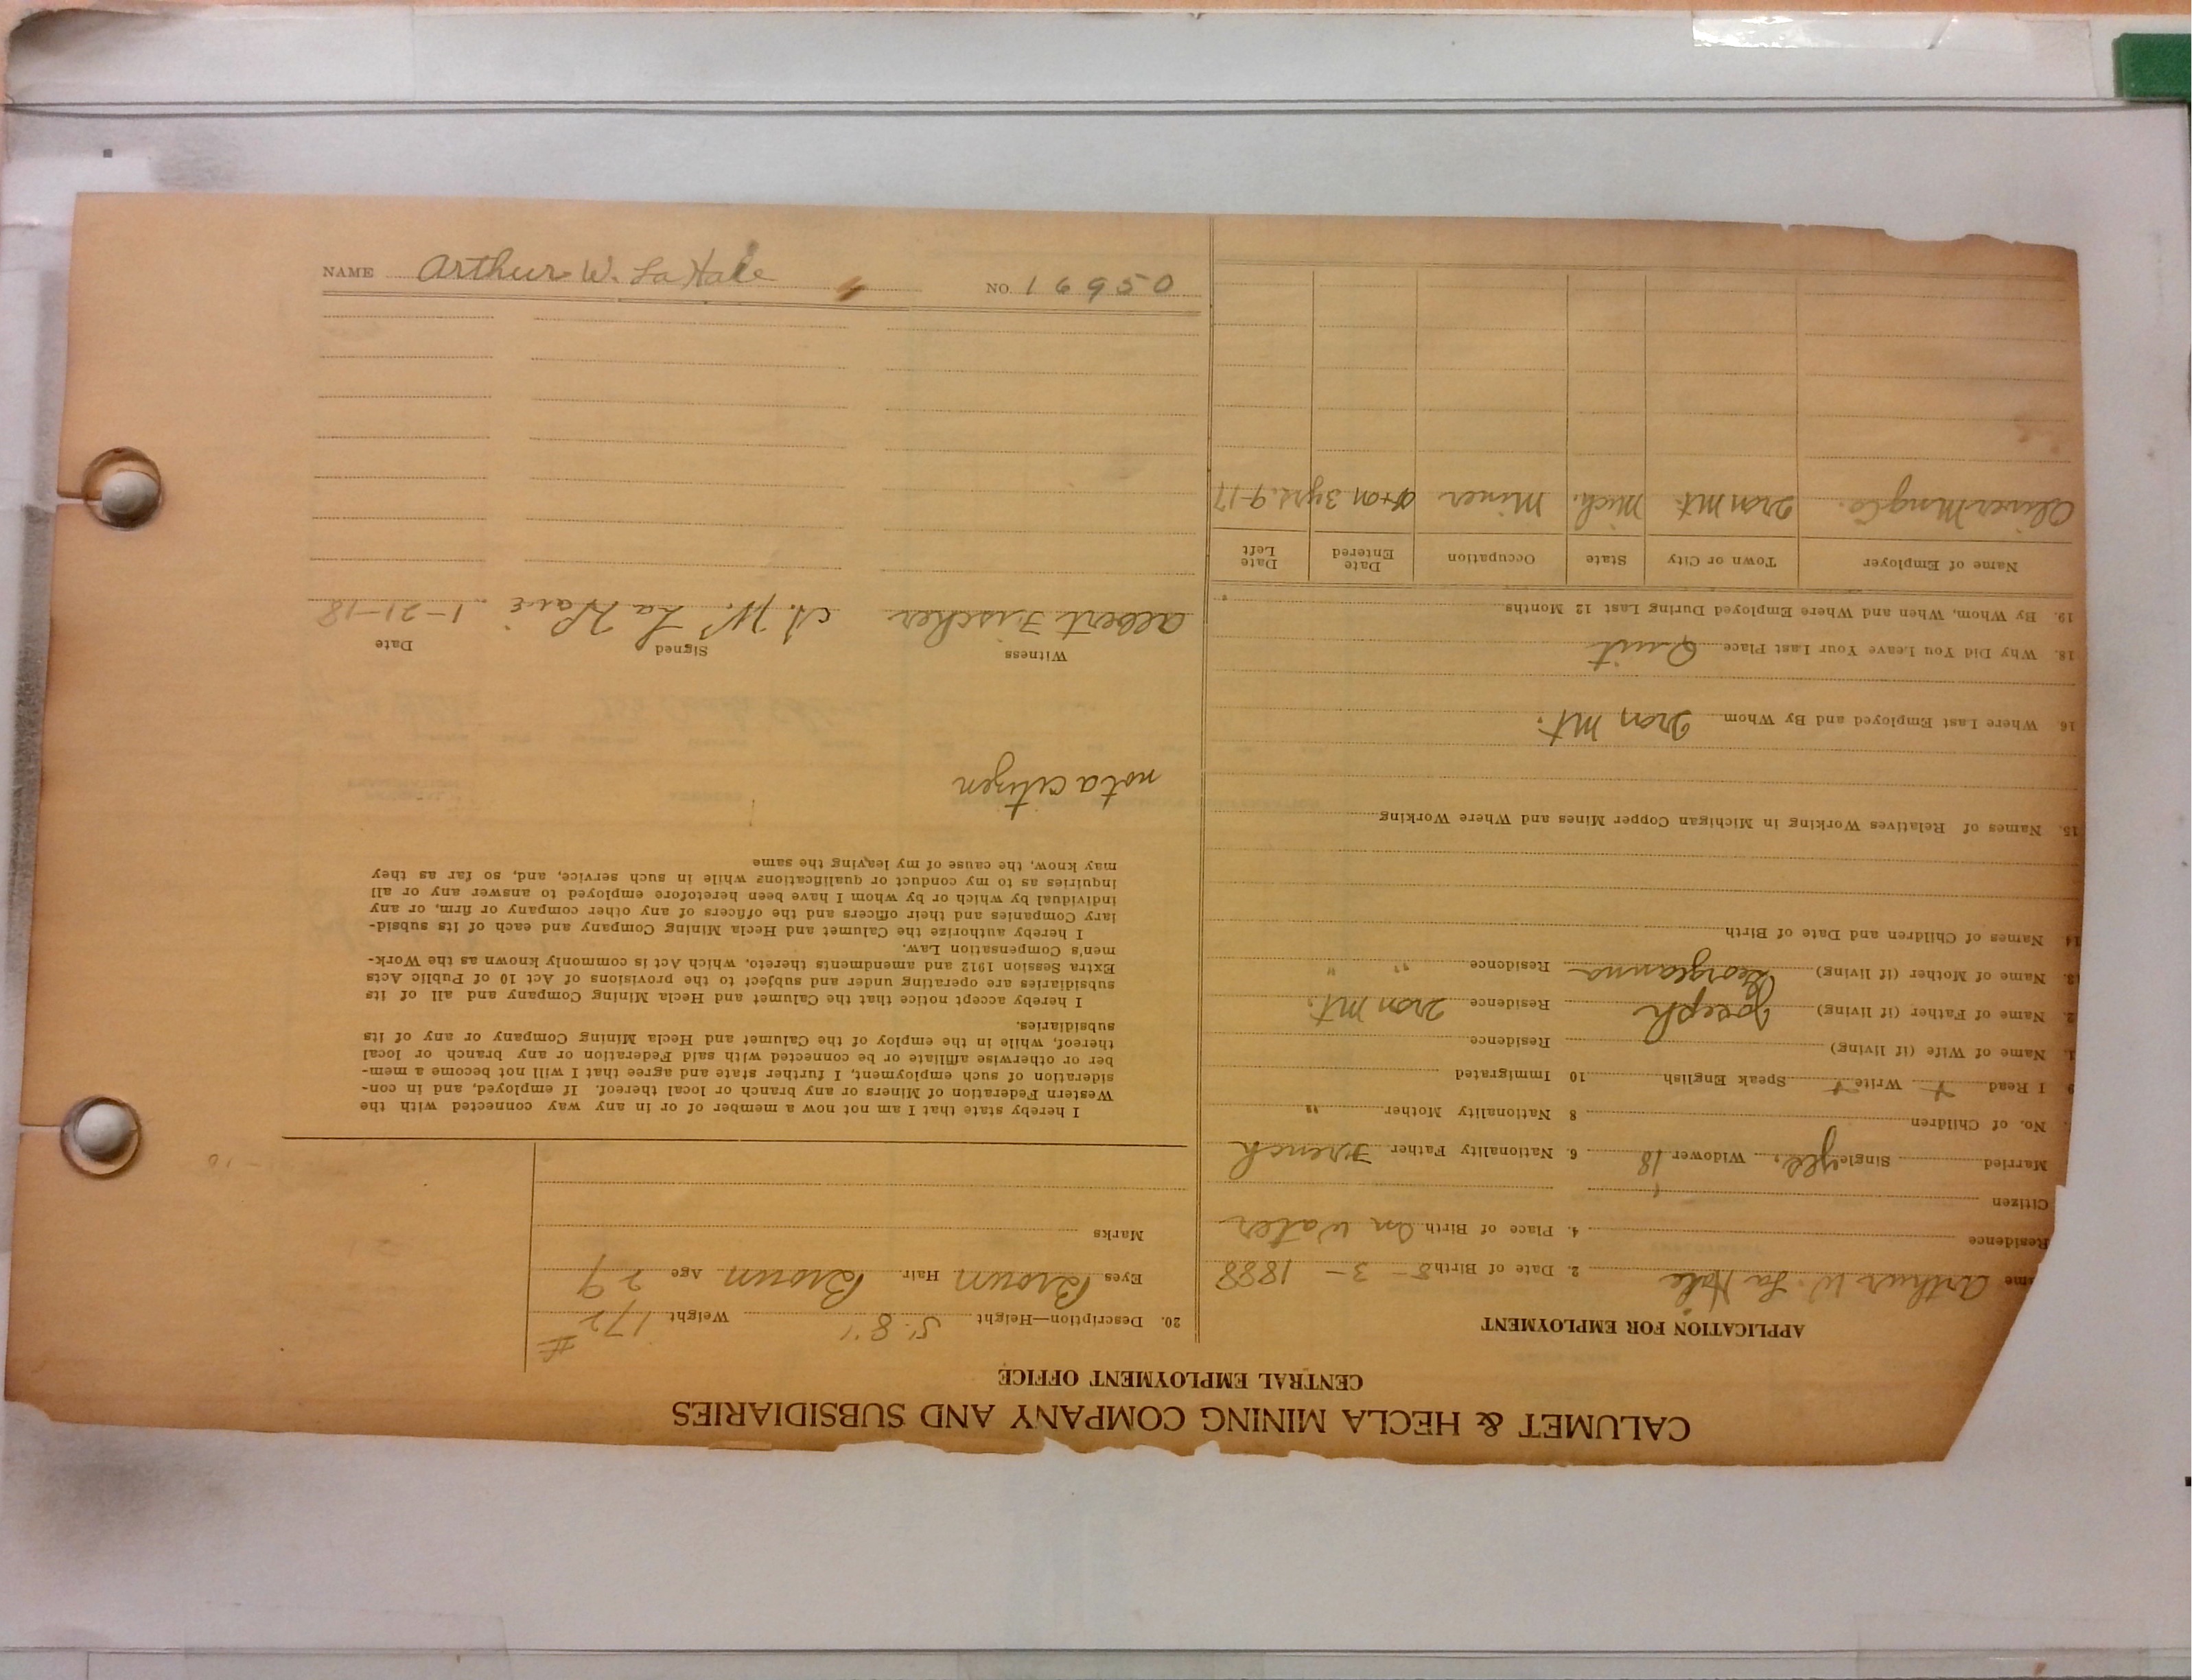 CALUMET & HECLA MINING COMPANY AND SUBSIDIARIES
CENTRAL EMPLOYMENT OFFICE
APPLICATION FOR EMPLOYMENT
me Arthur W. La 2. Date of Birth 8 - 3 - 1888
Residence 4. Place of Birth On Water
Citizen
Married Single yes, Widower 18 6. Nationality Father French
No. of Children 8 Nationality Mother "
9 I Read + Write + Speak English 10 Immigrated
1. Name of Wife (if living) Residence
2. Name of Father (if living) Joseph Residence Iron Mt.
3. Name of Mother (if living) Georgianna Residence " "
14 Names of Children and Date of Birth
15. Names of Relatives Working in Michigan Copper Mines and Where Working
16 Where Last Employed and By Whom Iron Mt.
18. Why Did You Leave Your Last Place Quit
19. By Whom, When and Where Employed During Last 12 Months
Name of Employer Town or City State Occupation Date Entered Date Left
Oliver Mng Co. Iron Mt. Mich. Miner 3 yrs. 9-17
20. Description—Height 5' 8" Weight 172 #
Eyes Brown Hair Brown Age 29
Marks
I hereby state that I am not now a member of or in any way connected with the
Western Federation of Miners or any branch or local thereof. If employed, and in con-
sideration of such employment, I further state and agree that I will not become a mem-
ber or otherwise affiliate or be connected with said Federation or any branch or local
thereof, while in the employ of the Calumet and Hecla Mining Company or any of its
subsidiaries.
I hereby accept notice that the Calumet and Hecla Mining Company and all of its
subsidiaries are operating under and subject to the provisions of Act 10 of Public Acts
Extra Session 1912 and amendments thereto, which Act is commonly known as the Work-
men's Compensation Law.
I hereby authorize the Calumet and Hecla Mining Company and each of its subsid-
iary Companies and their officers and the officers of any other company or firm, or any
individual by which or by whom I have been heretofore employed to answer any or all
inquiries as to my conduct or qualifications while in such service, and, so far as they
may know, the cause of my leaving the same
not a citizen
Witness Signed Date
Albert Fischer A. W. La Haie 1-21-18
NAME Arthur W. La Haie NO. 16950